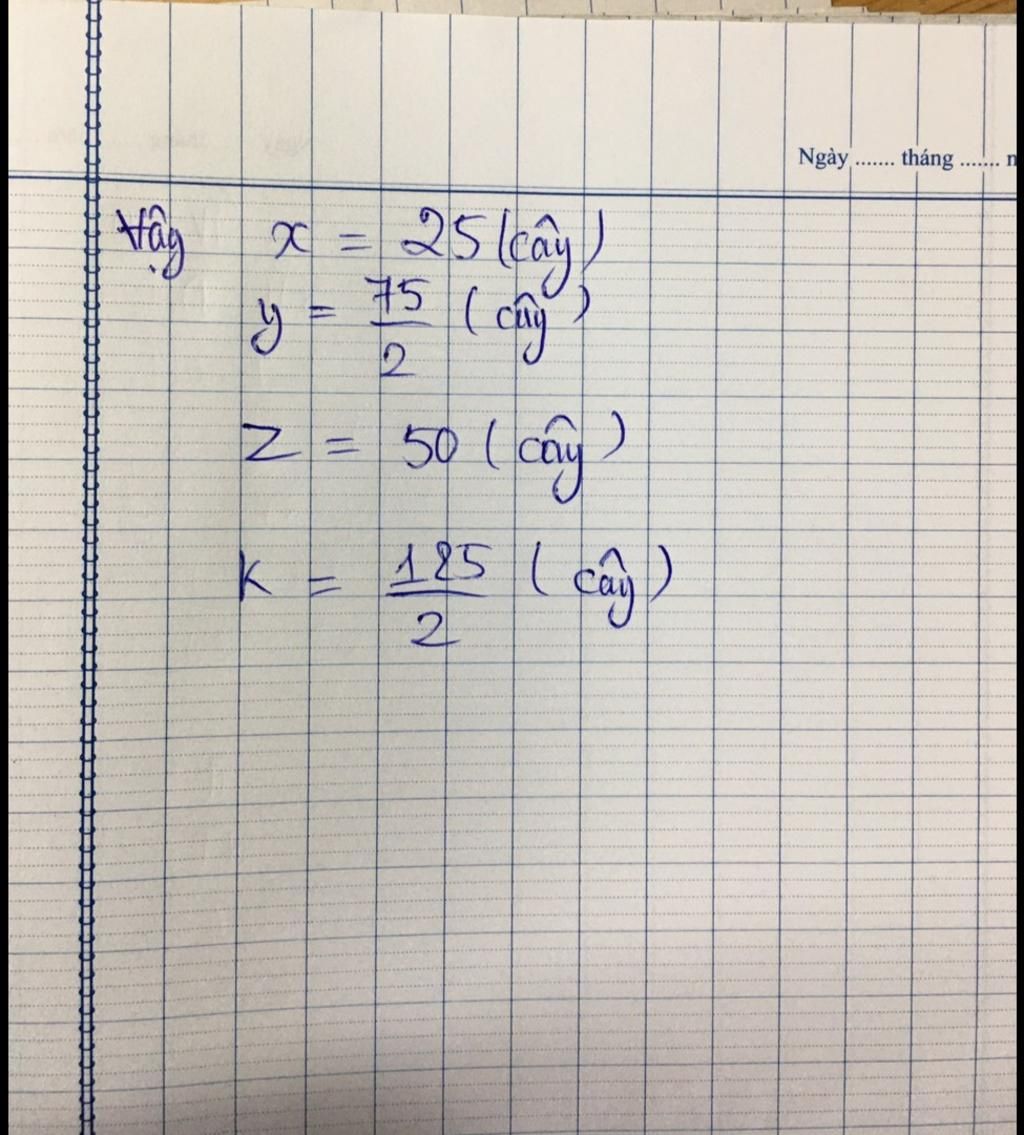 Ngày ....... tháng ....... n
Vậy x = 25 (cây)
y = 75/2 (cây)
z = 50 (cây)
K = 125/2 (cây)